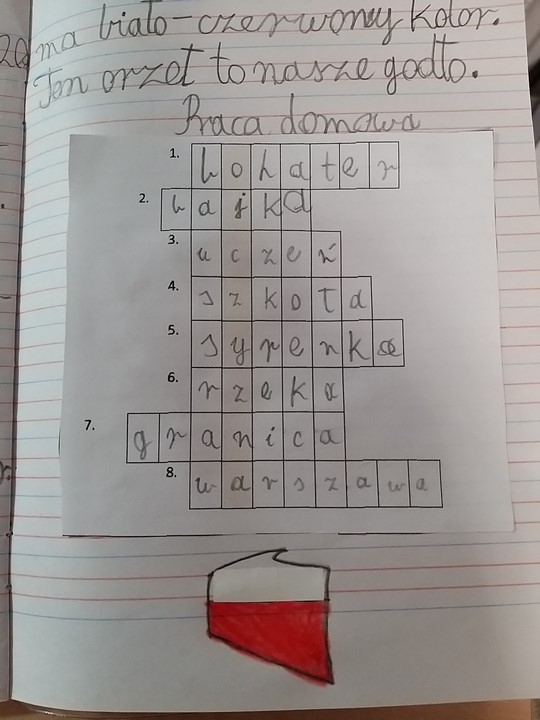 ma biało-czerwony kolor.
Ten orzeł to nasze godło.
Praca domowa
1. bohater
2. bajka
3. uczeń
4. szkoła
5. syrenka
6. rzeka
7. granica
8. warszawa